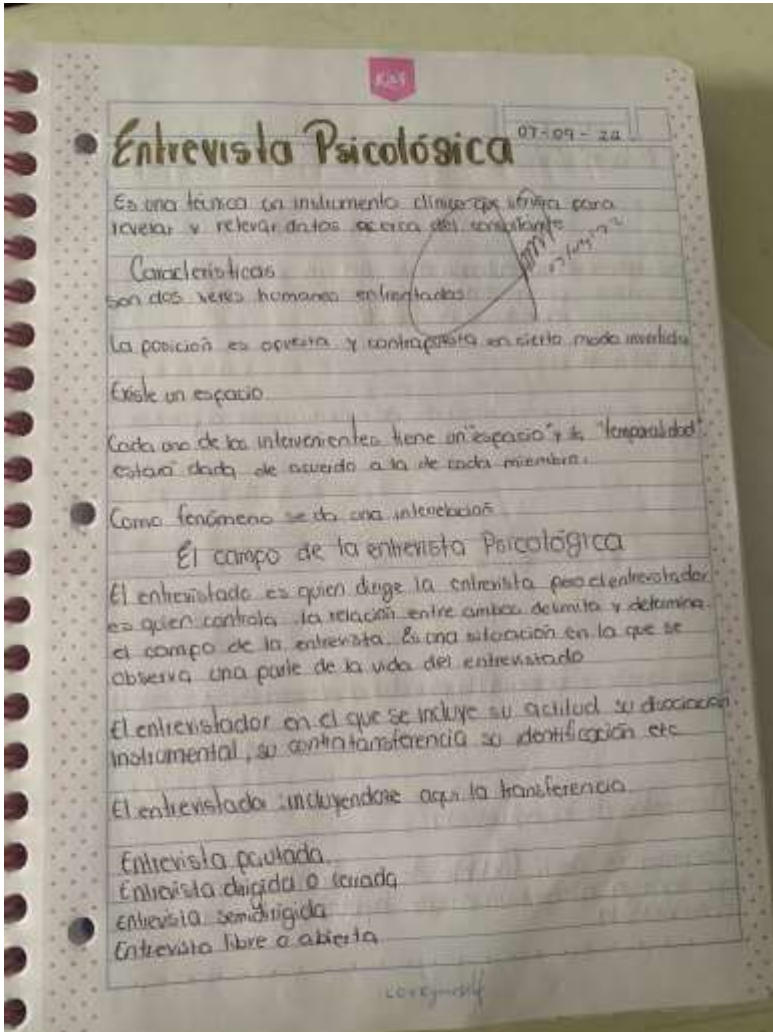 07-09-24
Entrevista Psicológica
Es una técnica un instrumento clínico que para
revelar y relevar datos acerca del consultante
Características
son dos seres humanos enfrentados
La posición es opuesta y contrapuesta en cierto modo invertida
Existe un espacio
Cada uno de los intervenientes tiene un "espacio" y "temporalidad"
estará dada de acuerdo a la de cada miembro.
Como fenómeno se da una interrelación
El campo de la entrevista Psicológica
El entrevistado es quien dirige la entrevista pero el entrevistador
es quien controla, la relación entre ambos delimita y determina
el campo de la entrevista. Es una situación en la que se
observa una parte de la vida del entrevistado
El entrevistador en el que se incluye su actitud su disociación
instrumental, su contratansferencia su identificación etc
El entrevistado incluyendose aqui la transferencia
Entrevista pautada
Entrevista dirigida o cerrada
Entrevista semidirigida
Entrevista libre o abierta